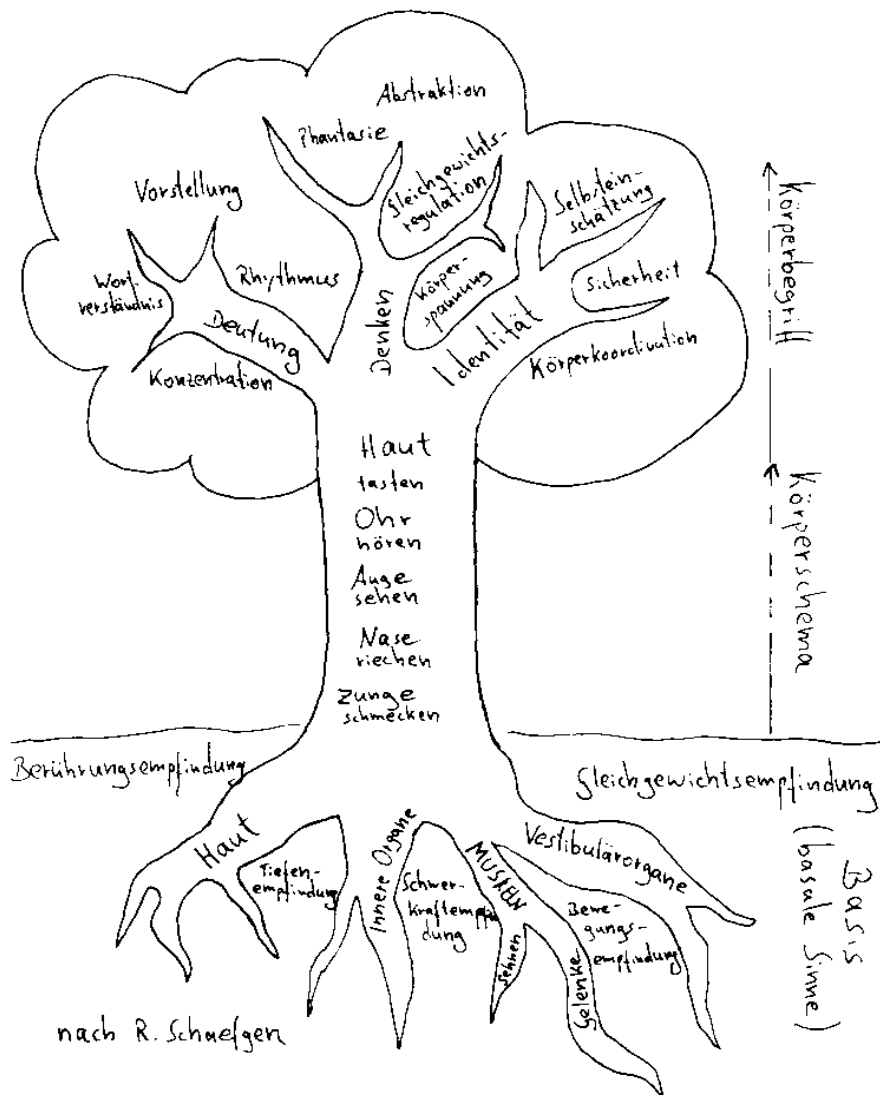 Abstraktion
Phantasie
Gleichgewichts-
regulation
Selbstein-
schätzung
Vorstellung
Wort-
verständnis
Rhythmus
Körper-
spannung
Sicherheit
Deutung
Denken
Identität
Konzentration
Körperkoordination
Körperbegriff
Haut
tasten
Ohr
hören
Auge
sehen
Nase
riechen
Zunge
schmecken
Körperschema
Berührungsempfindung
Gleichgewichtsempfindung
Haut
Tiefen-
empfindung
Innere Organe
Schwer-
kraftempfin-
dung
Muskeln
Sehnen
Gelenke
Vestibulärorgane
Bewe-
gungs-
empfindung
Basis
(basale Sinne)
nach R. Schaefgen